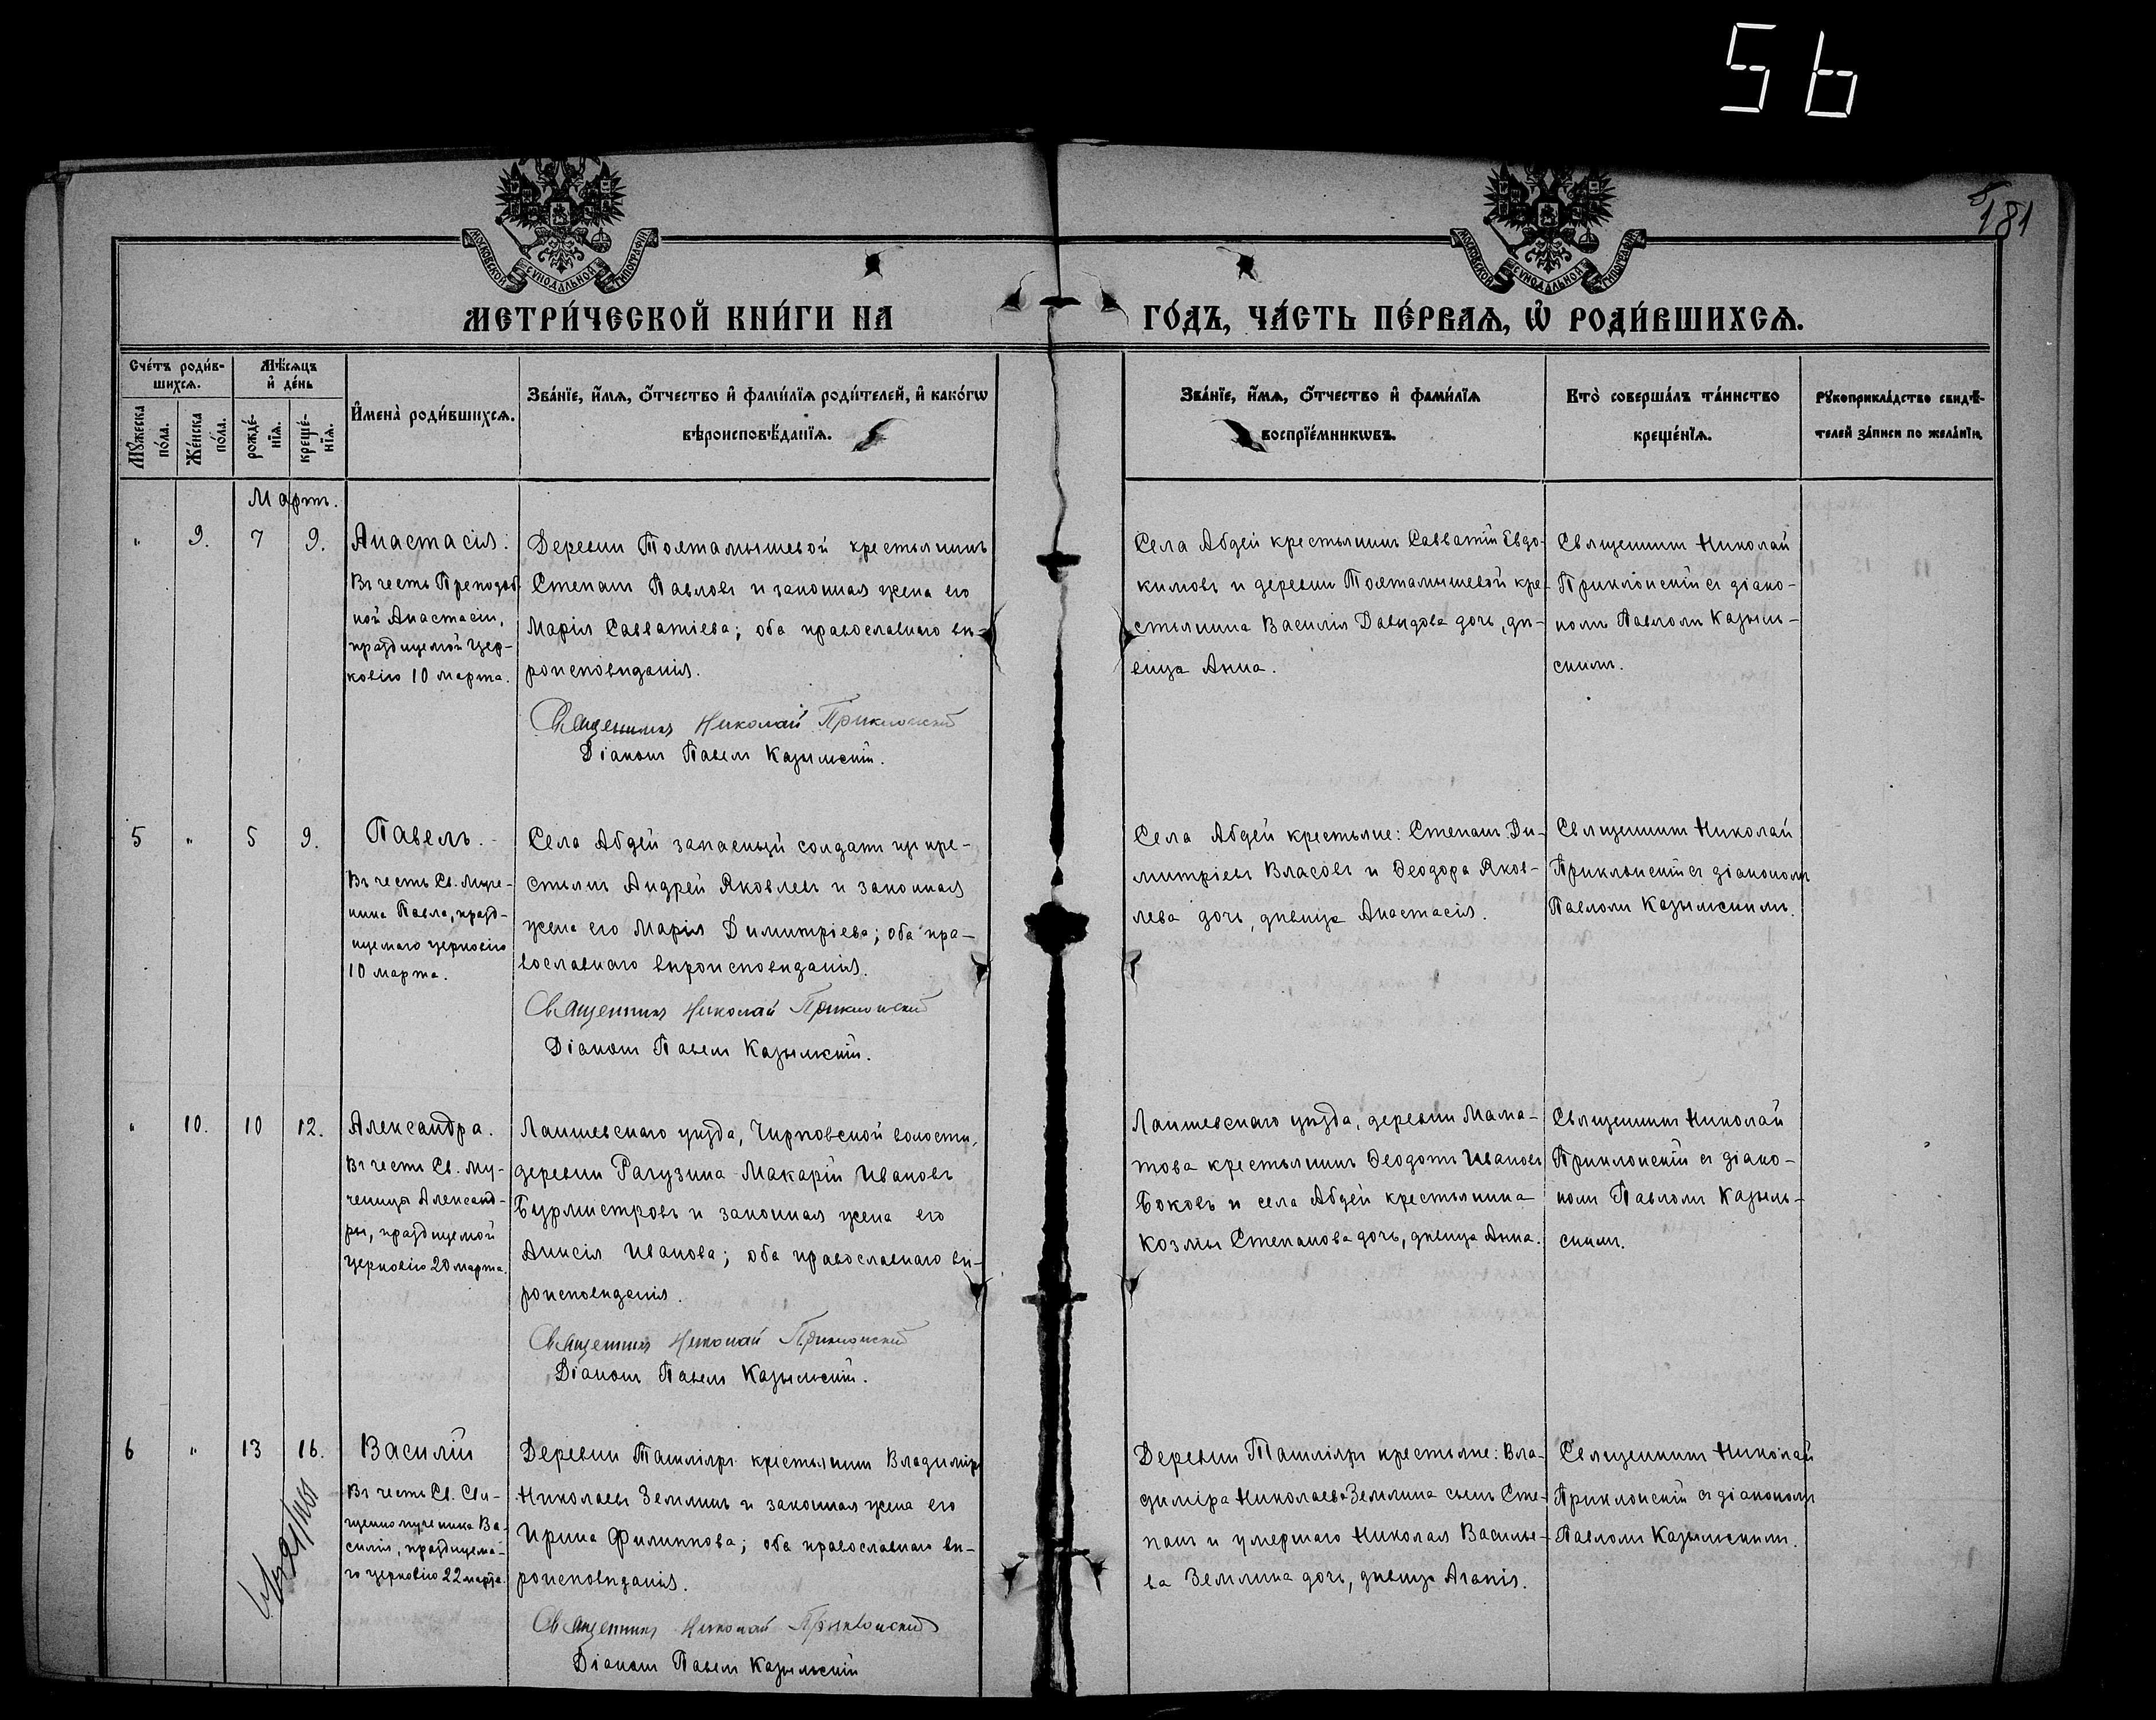 56
181
МОСКОВСКОЙ СѴНОДАЛЬНОЙ ТИПОГРАФІИ
МОСКОВСКОЙ СѴНОДАЛЬНОЙ ТИПОГРАФІИ
МЕТРИ́ЧЕСКОЙ КНИ́ГИ НА
ГО́ДЪ, ЧА́СТЬ ПЕ́РВАѦ, Ѡ҆ РОДИ́ВШИХСѦ.
Сче́тъ роди́в-
шихсѧ.
Мѣ́сѧцъ
и҆ де́нь
Мꙋжеска по́ла.
Же́нска по́ла.
рожде́-
нїѧ.
креще́-
нїѧ.
И҆мена̀ роди́вшихсѧ.
Зва́нїе, и҆́мѧ, ѻ҆́тчество и҆ фами́лїѧ роди́телей, и҆ како́гѡ
вѣроисповѣ́данїѧ.
Зва́нїе, и҆́мѧ, ѻ҆́тчество и҆ фами́лїѧ
воспрїе́мникѡвъ.
Кто̀ соверша́лъ та́инство
креще́нїѧ.
Рꙋкоприкла́дство свидѣ́-
телей за́писи по жела́нїю.
Мартъ.
" 9. 7 9.
Анастасія.
Въ честь Преподоб-
ной Анастасіи,
празднуемой Цер-
ковію 10 марта.
Деревни Тохтамышевой крестьянинъ
Степанъ Павловъ и законная жена его
Марія Савватіева; оба православнаго вѣ-
роисповѣданія.
Священникъ Николай Приклонскій
Діаконъ Павелъ Казыльскій.
Села Абдей крестьянинъ Савватій Евдо-
кимовъ и деревни Тохтамышевой кре-
стьянина Василія Давыдова дочь, дѣ-
вица Анна.
Священникъ Николай
Приклонскій съ діако-
номъ Павломъ Казыль-
скимъ.
5 " 5 9.
Павелъ.
Въ честь Св. Муче-
ника Павла, празд-
нуемаго церковію
10 марта.
Села Абдей запасный солдатъ изъ кре-
стьянъ Андрей Яковлевъ и законная
жена его Марія Димитріева; оба пра-
вославнаго вѣроисповѣданія.
Священникъ Николай Приклонскій
Діаконъ Павелъ Казыльскій.
Села Абдей крестьяне: Степанъ Ди-
митріевъ Власовъ и Ѳеодора Яков-
лева дочь, дѣвица Анастасія.
Священникъ Николай
Приклонскій съ діакономъ
Павломъ Казыльскимъ.
" 10. 10 12.
Александра.
Въ честь Св. Му-
ченицы Александ-
ры, празднуемой
церковію 20 марта.
Лаишевскаго уѣзда, Чирповской волости,
деревни Рагузина Макарій Ивановъ
Бурмистровъ и законная жена его
Анисія Иванова; оба православнаго вѣ-
роисповѣданія.
Священникъ Николай Приклонскій
Діаконъ Павелъ Казыльскій.
Лаишевскаго уѣзда, деревни Мама-
това крестьянинъ Ѳеодотъ Ивановъ
Боковъ и села Абдей крестьянина
Козмы Степанова дочь, дѣвица Анна.
Священникъ Николай
Приклонскій съ діако-
номъ Павломъ Казыль-
скимъ.
6 " 13 16.
Василій
Въ честь Св. Свя-
щенномученика Ва-
силія, празднуема-
го церковію 22 марта.
Деревни Ташлiяръ крестьянинъ Владиміръ
Николаевъ Землинъ и законная жена его
Ирина Филиппова; оба православнаго вѣ-
роисповѣданія.
Священникъ Николай Приклонскій
Діаконъ Павелъ Казыльскій
Деревни Ташлiяръ крестьяне: Вла-
диміра Николаева Землина сынъ Сте-
панъ и умершаго Николая Василье-
ва Землина дочь, дѣвица Агапія.
Священникъ Николай
Приклонскій съ діакономъ
Павломъ Казыльскимъ.